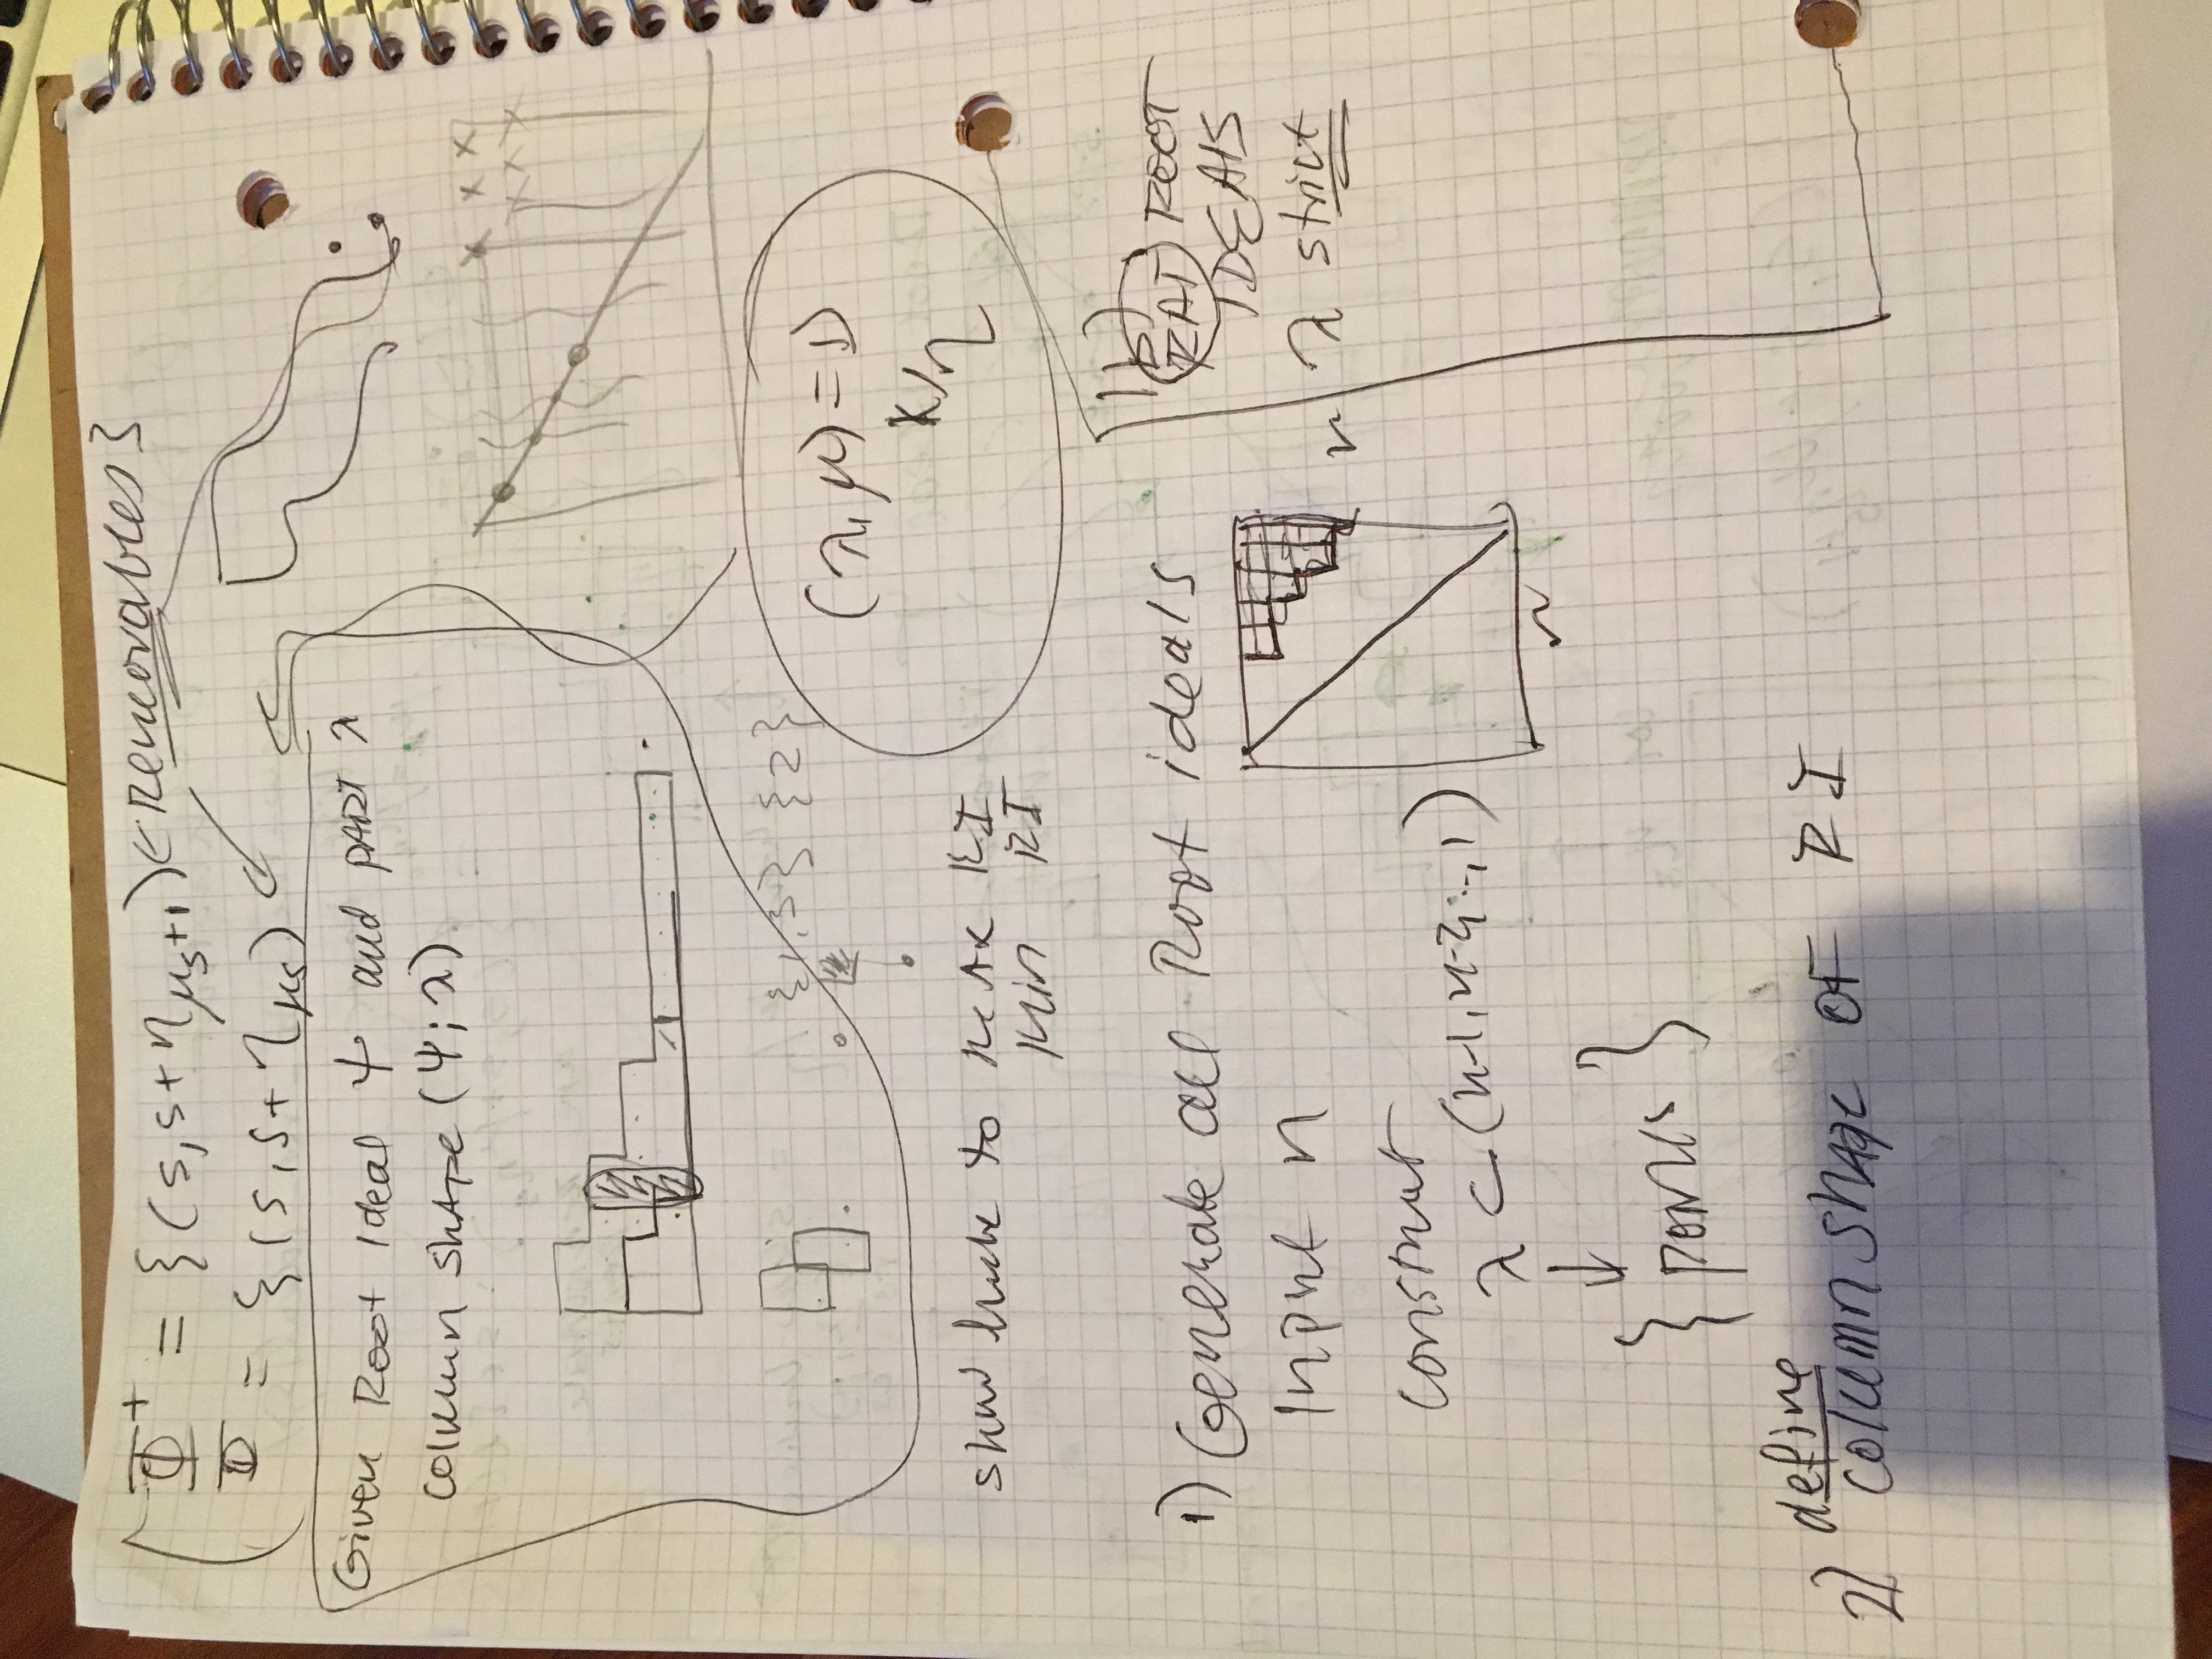 Φ⁺ = {(s, s+η_{μ_s+1}) ← Removables}
Φ = {(s, s+η_{μ_s})
Given Root Ideal Ψ and PART λ
column shape (Ψ; λ)
x x x
x x x x
{1,3} {2}
(λ, μ) = D
k/η
to MAX RI
Min RI
1) Generate all Root ideals
Input n
construct
λ ⊂ (n-1, n-2, .., 1)
↓
{ points }
n
n
1b)
RAT ROOT
IDEALS
λ strict
2) define
column shape OF RI